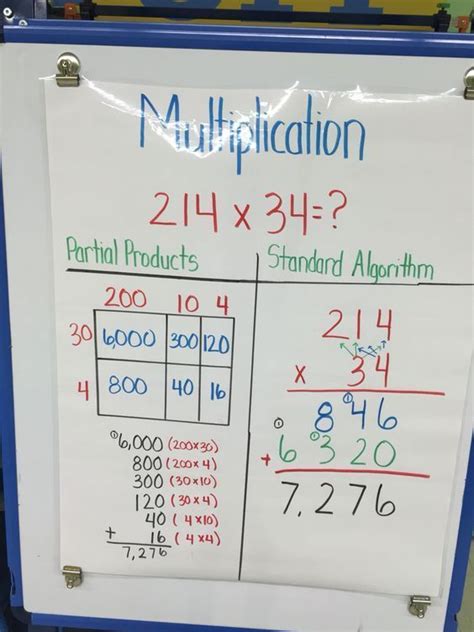 Multiplication
214 x 34=?
Partial Products
200 10 4
30 6,000 300 120
4 800 40 16
① 6,000 (200x30)
800 (200 x 4)
300 (30x10)
120 (30x4)
40 ( 4x10)
+ 16 ( 4x4)
7,276
Standard Algorithm
214
x 34
① 8 ① 46
+ 6 ① 320
7,276